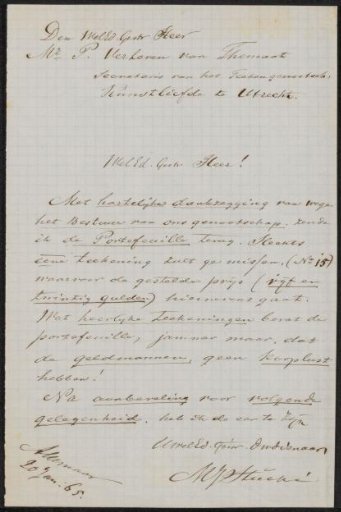 Den WelEd. Gestr Heer
Mr P. Verloren van Themaat
Secretaris van het Teekengenootsch.
Kunstliefde te Utrecht.
WelEd. Gestr Heer!
Met hartelijke dankzegging van wege
het Bestuur van ons genootschap, zende
ik de Portefeuille terug. Slechts
eene teekening zult ge missen, (No 15)
waarvoor de gestelde prijs (vijf en
twintig gulden) hiernevens gaat.
Wat heerlijke teekeningen bevat de
portefeuille, jammer maar, dat
de geldmannen, geen kooplust
hebben!
Na aanbeveling voor volgende
gelegenheid, heb ik de eer te zijn
UwelEd. Gestr. Dw Dienaar
Alkmaar
20 Jan. 65.